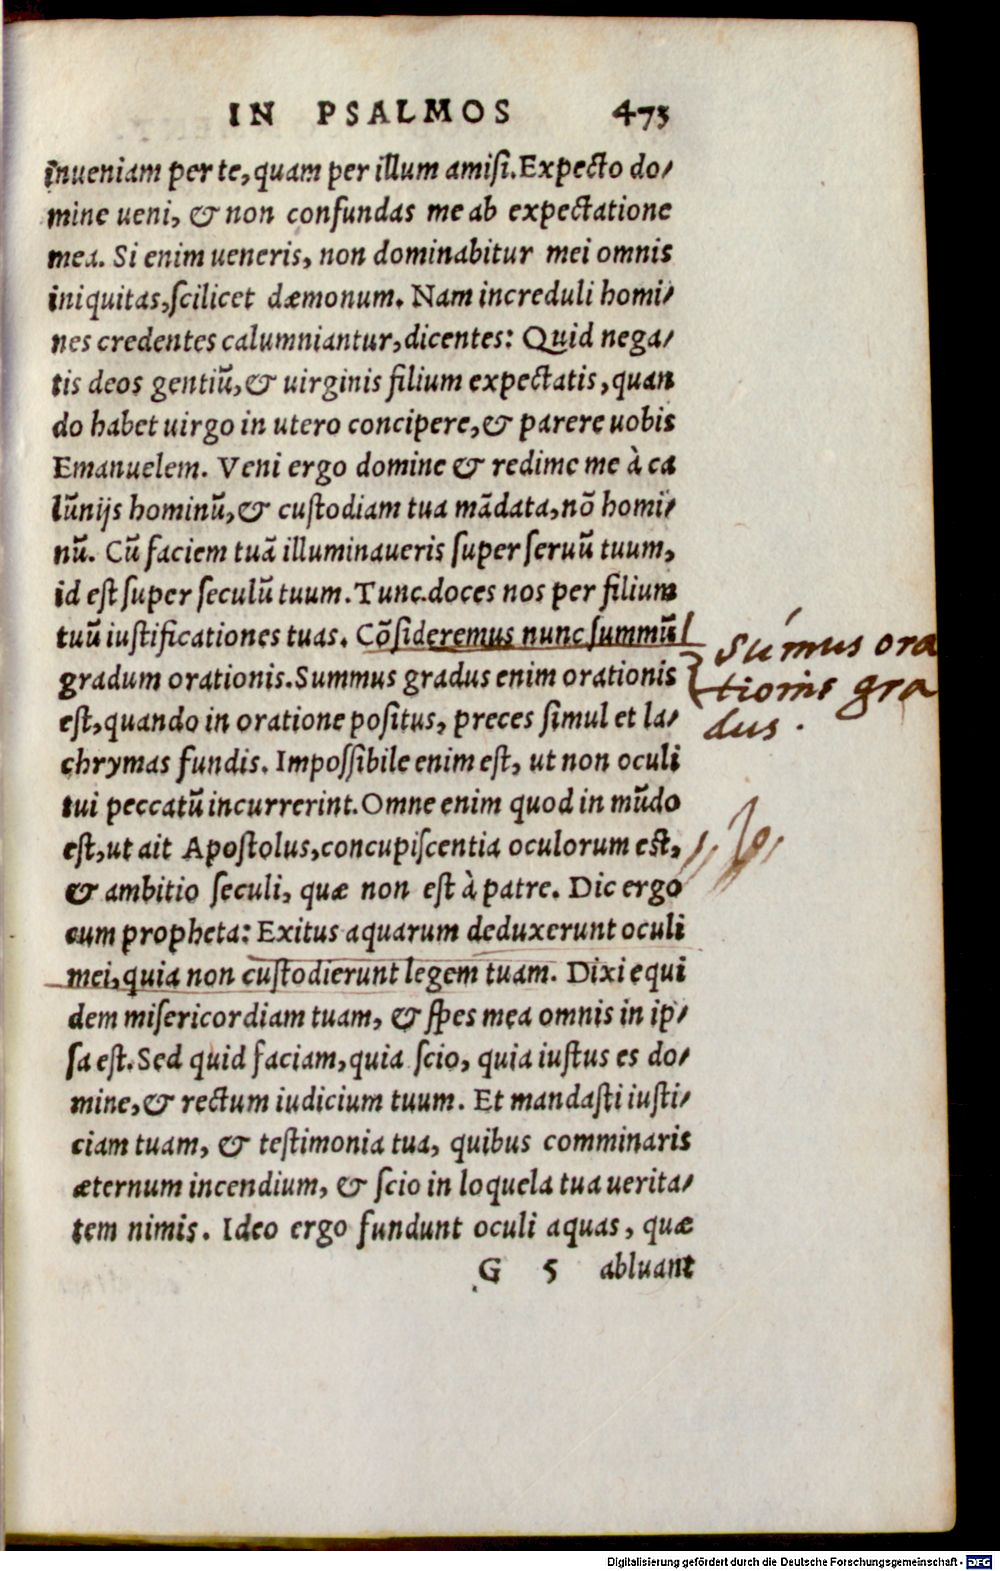 IN PSALMOS 473
inueniam per te, quam per illum amisi. Expecto do-
mine ueni, & non confundas me ab expectatione
mea. Si enim ueneris, non dominabitur mei omnis
iniquitas, scilicet dæmonum. Nam increduli homi-
nes credentes calumniantur, dicentes: Quid nega-
tis deos gentiū, & uirginis filium expectatis, quan
do habet uirgo in utero concipere, & parere uobis
Emanuelem. Veni ergo domine & redime me à ca
lūnijs hominū, & custodiam tua mādata, nō homi-
nū. Cū faciem tuā illuminaueris super seruū tuum,
id est super seculū tuum. Tunc.doces nos per filium
tuū iustificationes tuas. Cōsideremus nunc summū
gradum orationis. Summus gradus enim orationis
est, quando in oratione positus, preces simul et la-
chrymas fundis. Impossibile enim est, ut non oculi
tui peccatū incurrerint. Omne enim quod in mūdo
est, ut ait Apostolus, concupiscentia oculorum est,
& ambitio seculi, quæ non est à patre. Dic ergo
cum propheta: Exitus aquarum deduxerunt oculi
mei, quia non custodierunt legem tuam. Dixi equi
dem misericordiam tuam, & spes mea omnis in ip-
sa est. Sed quid faciam, quia scio, quia iustus es do-
mine, & rectum iudicium tuum. Et mandasti iusti-
ciam tuam, & testimonia tua, quibus comminaris
æternum incendium, & scio in loquela tua uerita-
tem nimis. Ideo ergo fundunt oculi aquas, quæ
G 5 abluant
Súmus ora
tionis gra
dus.
Digitalisierung gefördert durch die Deutsche Forschungsgemeinschaft - DFG